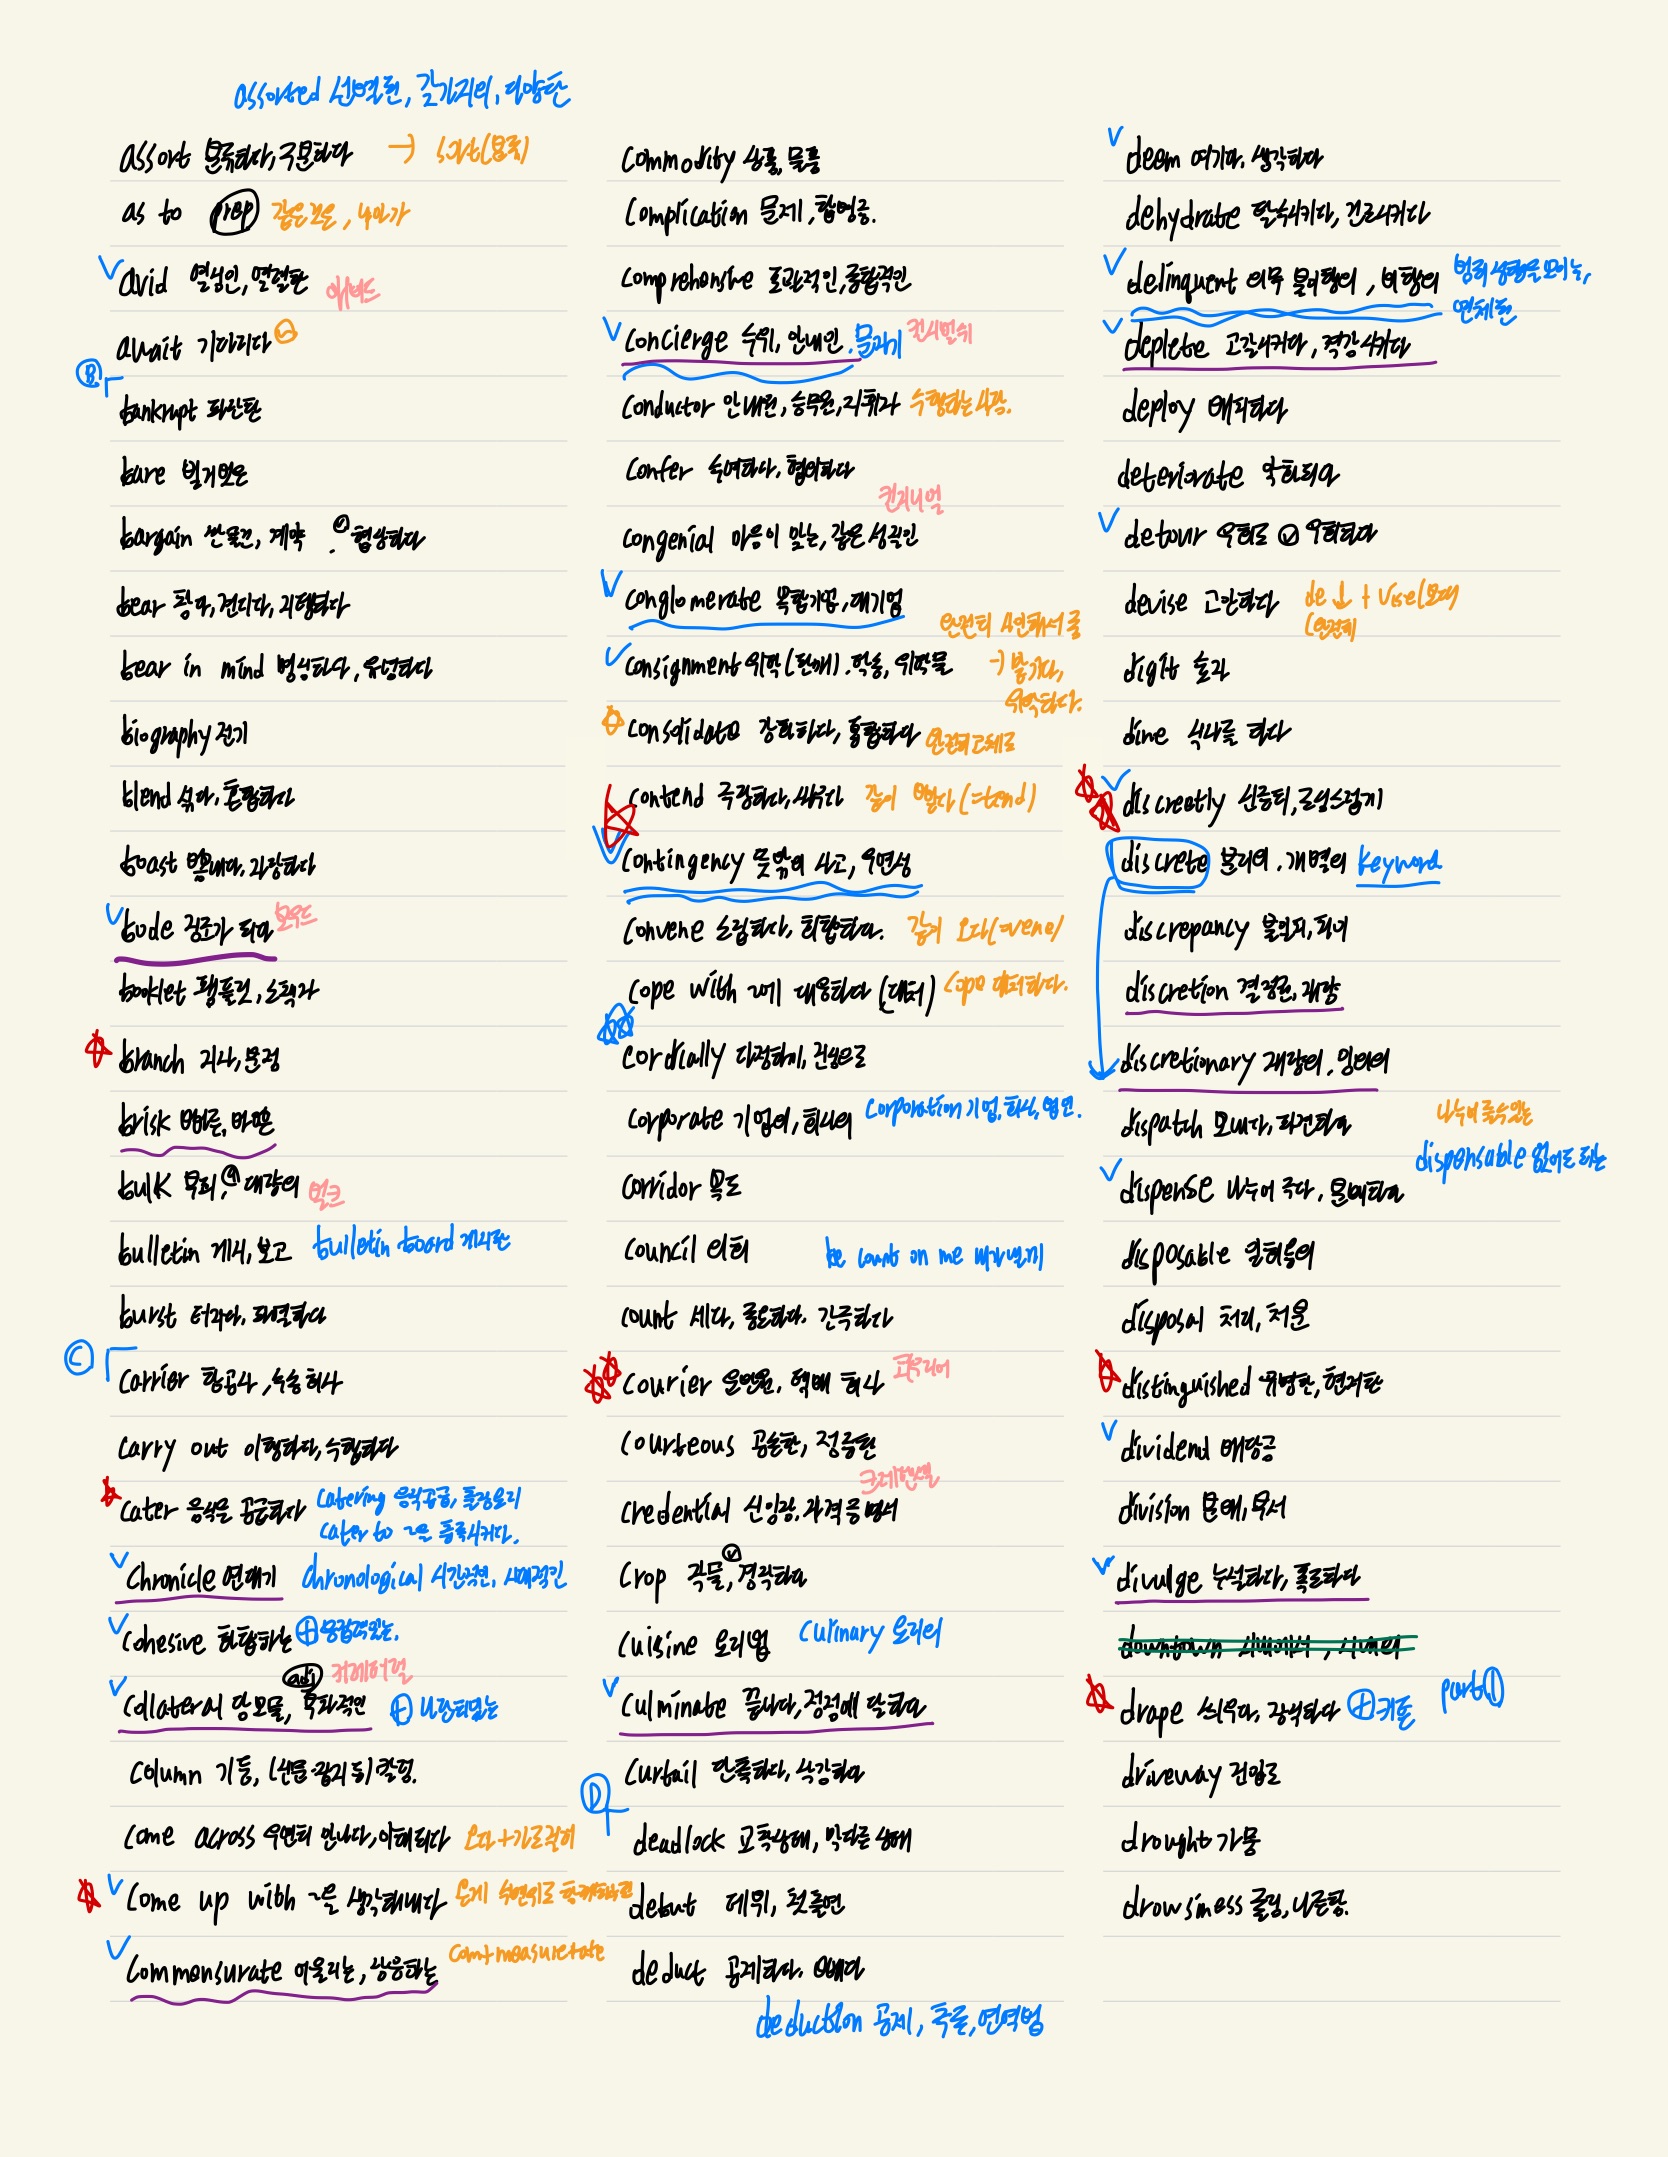 assorted 선별된, 갖가지의, 다양한
assort 분류하다, 구분하다 → sort(분류)
as to prep
avid 열심인, 열렬한 애비드
await 기다리다 v
B
bankrupt 파산한
bare 벌거벗은
bargain 싼 물건, 계약 . v 협상하다
bear 참다, 견디다, 지탱하다
bear in mind 명심하다, 유념하다
biography 전기
blend 섞다, 혼합하다
boast 뽐내다, 자랑하다
bode 징조가 되다 보우드
booklet 팸플릿, 소책자
branch 지사, 분점
brisk 바쁜
bulk 부피, a 대량의 벌크
bulletin 게시, 보고 bulletin board 게시판
burst 터지다, 파열하다
C
carrier 항공사, 수송 회사
carry out 이행하다, 수행하다
cater 음식을 공급하다 catering 음식공급, 출장요리
cater to ~을 충족시키다.
Chronicle 연대기 chronological 시간적인, 시대적인
Cohesive 화합하는 + 응집력있는.
adj 커레터럴
Collateral 담보물, 부차적인 +
Column 기둥, (신문·잡지 등) 칼럼.
Come across 우연히 만나다, 이해되다 오다+가로질러
Come up with ~을 생각해내다
Commensurate 어울리는, 상응하는 com+measure+ate
Commodity 상품, 물품
Complication 문제, 합병증.
Comprehensive 포괄적인, 종합적인
Concierge 수위, 안내인. 문지기 컨시얼쉬
Conductor 안내원, 승무원, 지휘자 수행하는 사람.
Confer 수여하다, 협의하다
컨지니얼
Congenial 마음이 맞는, 같은 성질인
Conglomerate 복합기업, 대기업
완전히 사인해서 줄
Consignment 위탁(판매). 탁송, 위탁물 → 맡기다,
위탁하다.
Consolidate 강화하다, 통합하다 완전히 고체로
Contend 주장하다, 싸우다 같이 뻗다(=tend)
Contingency 뜻밖의 사고, 우연성
Convene 소집하다, 회합하다. 같이 오다(=vene)
Cope with ~에 대응하다 (대처) cope 대처하다.
cordially 다정하게, 진심으로
Corporate 기업의, 회사의 corporation 기업, 회사, 법인.
Corridor 복도
Council 의회 be count on me
Count 세다, 중요하다. 간주하다
Courier 운반원, 택배 회사 커우리어
Courteous 공손한, 정중한
크레덴셜
Credential 신임장, 자격증명서
Crop 작물, v 경작하다
Cuisine 요리법 Culinary 요리의
Culminate 끝나다, 정점에 달하다
Curtail 단축하다, 삭감하다
D
deadlock 교착상태, 막다른 상태
debut 데뷔, 첫 출연
deduct 공제하다. 빼다
deduction 공제, 추론, 연역법
deem 여기다. 생각하다
dehydrate 탈수시키다, 건조시키다
delinquent 의무 불이행의, 비행의 범죄 성향을 보이는,
연체된
deplete 고갈시키다, 격감시키다
deploy 배치하다
deteriorate 악화되다
detour 우회로 v 우회하다
devise 고안하다 de ↓ + vise(보다
(완전히
digit 숫자
dine 식사를 하다
discreetly 신중히, 조심스럽게
discrete 분리의. 개별의 keyword
discrepancy 불일치, 차이
discretion 결정권, 재량
discretionary 재량의. 임의의
dispatch 보내다, 파견하다 나누어 줄수있는
dispensable 없어도 되는
dispense 나누어 주다, 분배하다
disposable 일회용의
disposal 처리, 처분
distinguished 유명한, 현저한
dividend 배당금
division 분배, 부서
divulge 누설하다, 폭로하다
downtown 시내에서, 시내의
drape 씌우다, 장식하다 + 커튼 part1
driveway 진입로
drought 가뭄
drowsiness 졸림, 나른함.